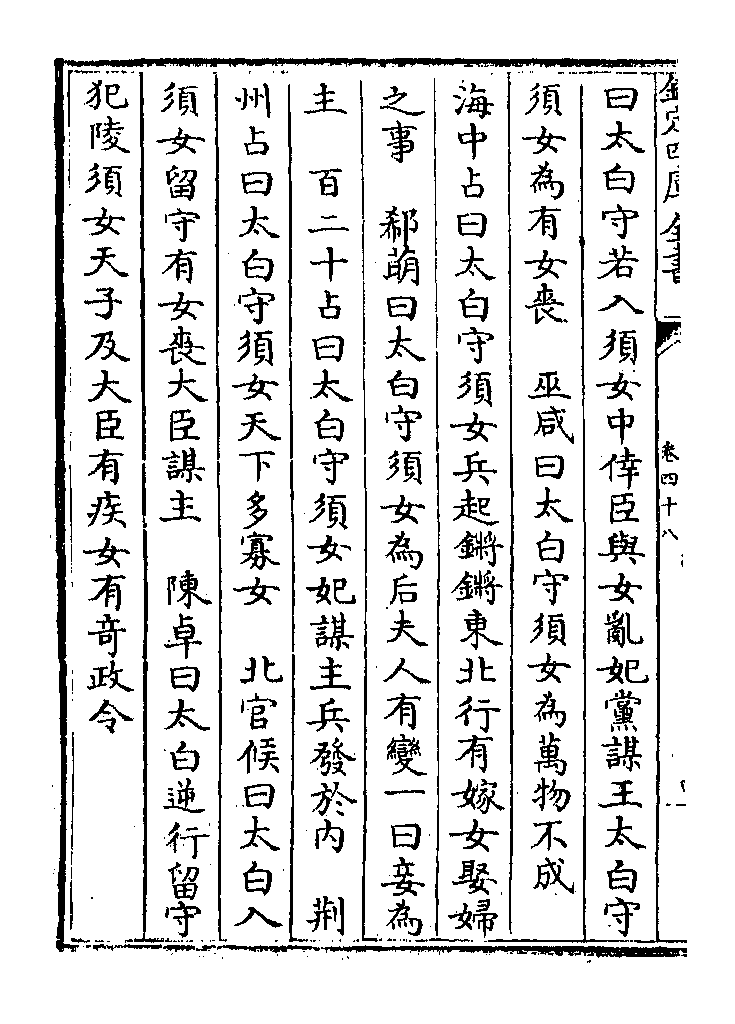 欽定四庫全書
卷四十八
曰太白守若入須女中倖臣與女亂妃黨謀王太白守
須女為有女喪　巫咸曰太白守須女為萬物不成
海中占曰太白守須女兵起鏘鏘東北行有嫁女娶婦
之事　郗萌曰太白守須女為后夫人有變一曰妾為
主　百二十占曰太白守須女妃謀主兵發於內　荆
州占曰太白守須女天下多寡女　北官候曰太白入
須女留守有女喪大臣謀主　陳卓曰太白逆行留守
犯陵須女天子及大臣有疾女有竒政令